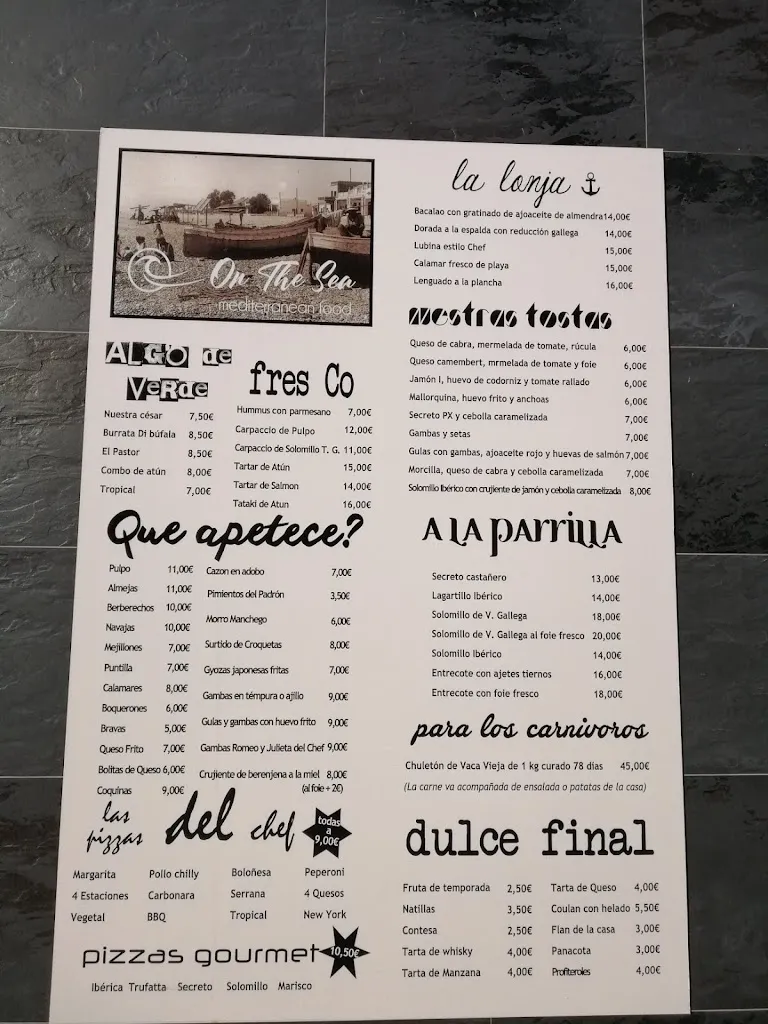 On The Sea
mediterranean food
ALGO de
VeRDe
Nuestra césar 7,50€
Burrata Di búfala 8,50€
El Pastor 8,50€
Combo de atún 8,00€
Tropical 7,00€
fres Co
Hummus con parmesano 7,00€
Carpaccio de Pulpo 12,00€
Carpaccio de Solomillo T. G. 11,00€
Tartar de Atún 15,00€
Tartar de Salmon 14,00€
Tataki de Atun 16,00€
Que apetece?
Pulpo 11,00€
Almejas 11,00€
Berberechos 10,00€
Navajas 10,00€
Mejillones 7,00€
Puntilla 7,00€
Calamares 8,00€
Boquerones 6,00€
Bravas 5,00€
Queso Frito 7,00€
Bolitas de Queso 6,00€
Coquinas 9,00€
Cazon en adobo 7,00€
Pimientos del Padrón 3,50€
Morro Manchego 6,00€
Surtido de Croquetas 8,00€
Gyozas japonesas fritas 7,00€
Gambas en témpura o ajillo 9,00€
Gulas y gambas con huevo frito 9,00€
Gambas Romeo y Julieta del Chef 9,00€
Crujiente de berenjena a la miel 8,00€
(al foie + 2€)
las pizzas del chef
todas
a
9,00€
Margarita Pollo chilly Boloñesa Peperoni
4 Estaciones Carbonara Serrana 4 Quesos
Vegetal BBQ Tropical New York
pizzas gourmet 10,50€
Ibérica Trufatta Secreto Solomillo Marisco
la lonja
Bacalao con gratinado de ajoaceite de almendra 14,00€
Dorada a la espalda con reducción gallega 14,00€
Lubina estilo Chef 15,00€
Calamar fresco de playa 15,00€
Lenguado a la plancha 16,00€
nuestras tostas
Queso de cabra, mermelada de tomate, rúcula 6,00€
Queso camembert, mrmelada de tomate y foie 6,00€
Jamón I, huevo de codorniz y tomate rallado 6,00€
Mallorquina, huevo frito y anchoas 6,00€
Secreto PX y cebolla caramelizada 7,00€
Gambas y setas 7,00€
Gulas con gambas, ajoaceite rojo y huevas de salmón 7,00€
Morcilla, queso de cabra y cebolla caramelizada 7,00€
Solomillo Ibérico con crujiente de jamón y cebolla caramelizada 8,00€
A LA PARRILLA
Secreto castañero 13,00€
Lagartillo Ibérico 14,00€
Solomillo de V. Gallega 18,00€
Solomillo de V. Gallega al foie fresco 20,00€
Solomillo Ibérico 14,00€
Entrecote con ajetes tiernos 16,00€
Entrecote con foie fresco 18,00€
para los carnivoros
Chuletón de Vaca Vieja de 1 kg curado 78 días 45,00€
(La carne va acompañada de ensalada o patatas de la casa)
dulce final
Fruta de temporada 2,50€
Natillas 3,50€
Contesa 2,50€
Tarta de whisky 4,00€
Tarta de Manzana 4,00€
Tarta de Queso 4,00€
Coulan con helado 5,50€
Flan de la casa 3,00€
Panacota 3,00€
Profiteroles 4,00€